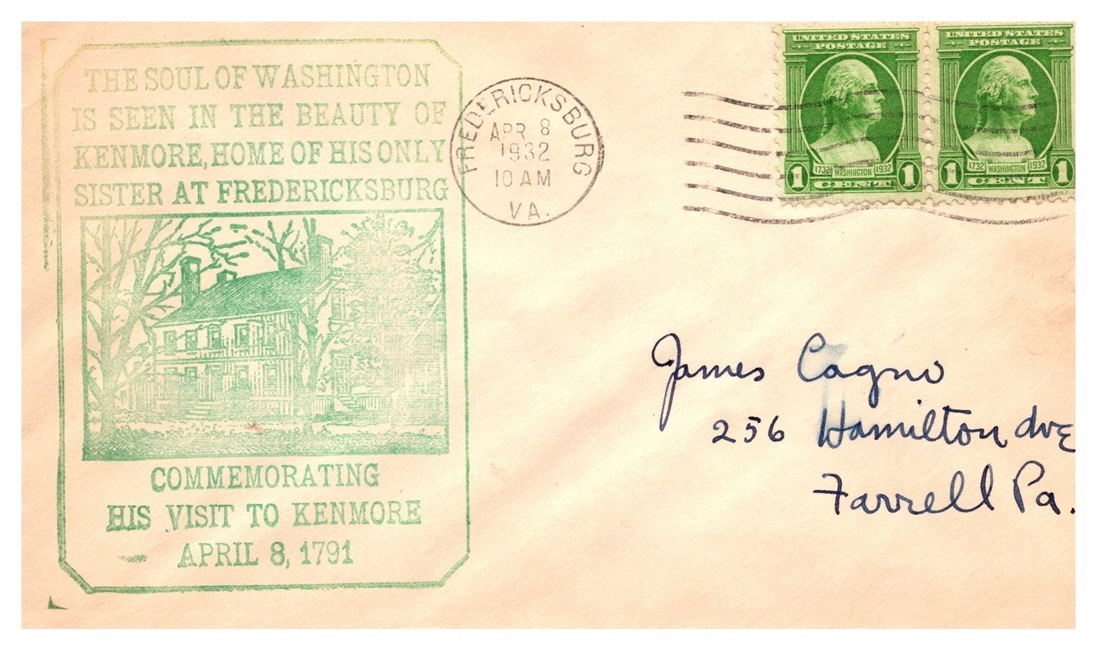 THE SOUL OF WASHINGTON
IS SEEN IN THE BEAUTY OF
KENMORE, HOME OF HIS ONLY
SISTER AT FREDERICKSBURG
COMMEMORATING
HIS VISIT TO KENMORE
APRIL 8, 1791
FREDERICKSBURG
APR 8
1932
10 AM
VA.
UNITED STATES
POSTAGE
1732 WASHINGTON 1932
1 CENT 1
UNITED STATES
POSTAGE
1732 WASHINGTON 1932
1 CENT 1
James Cagno
256 Hamilton Ave
Farrell Pa.